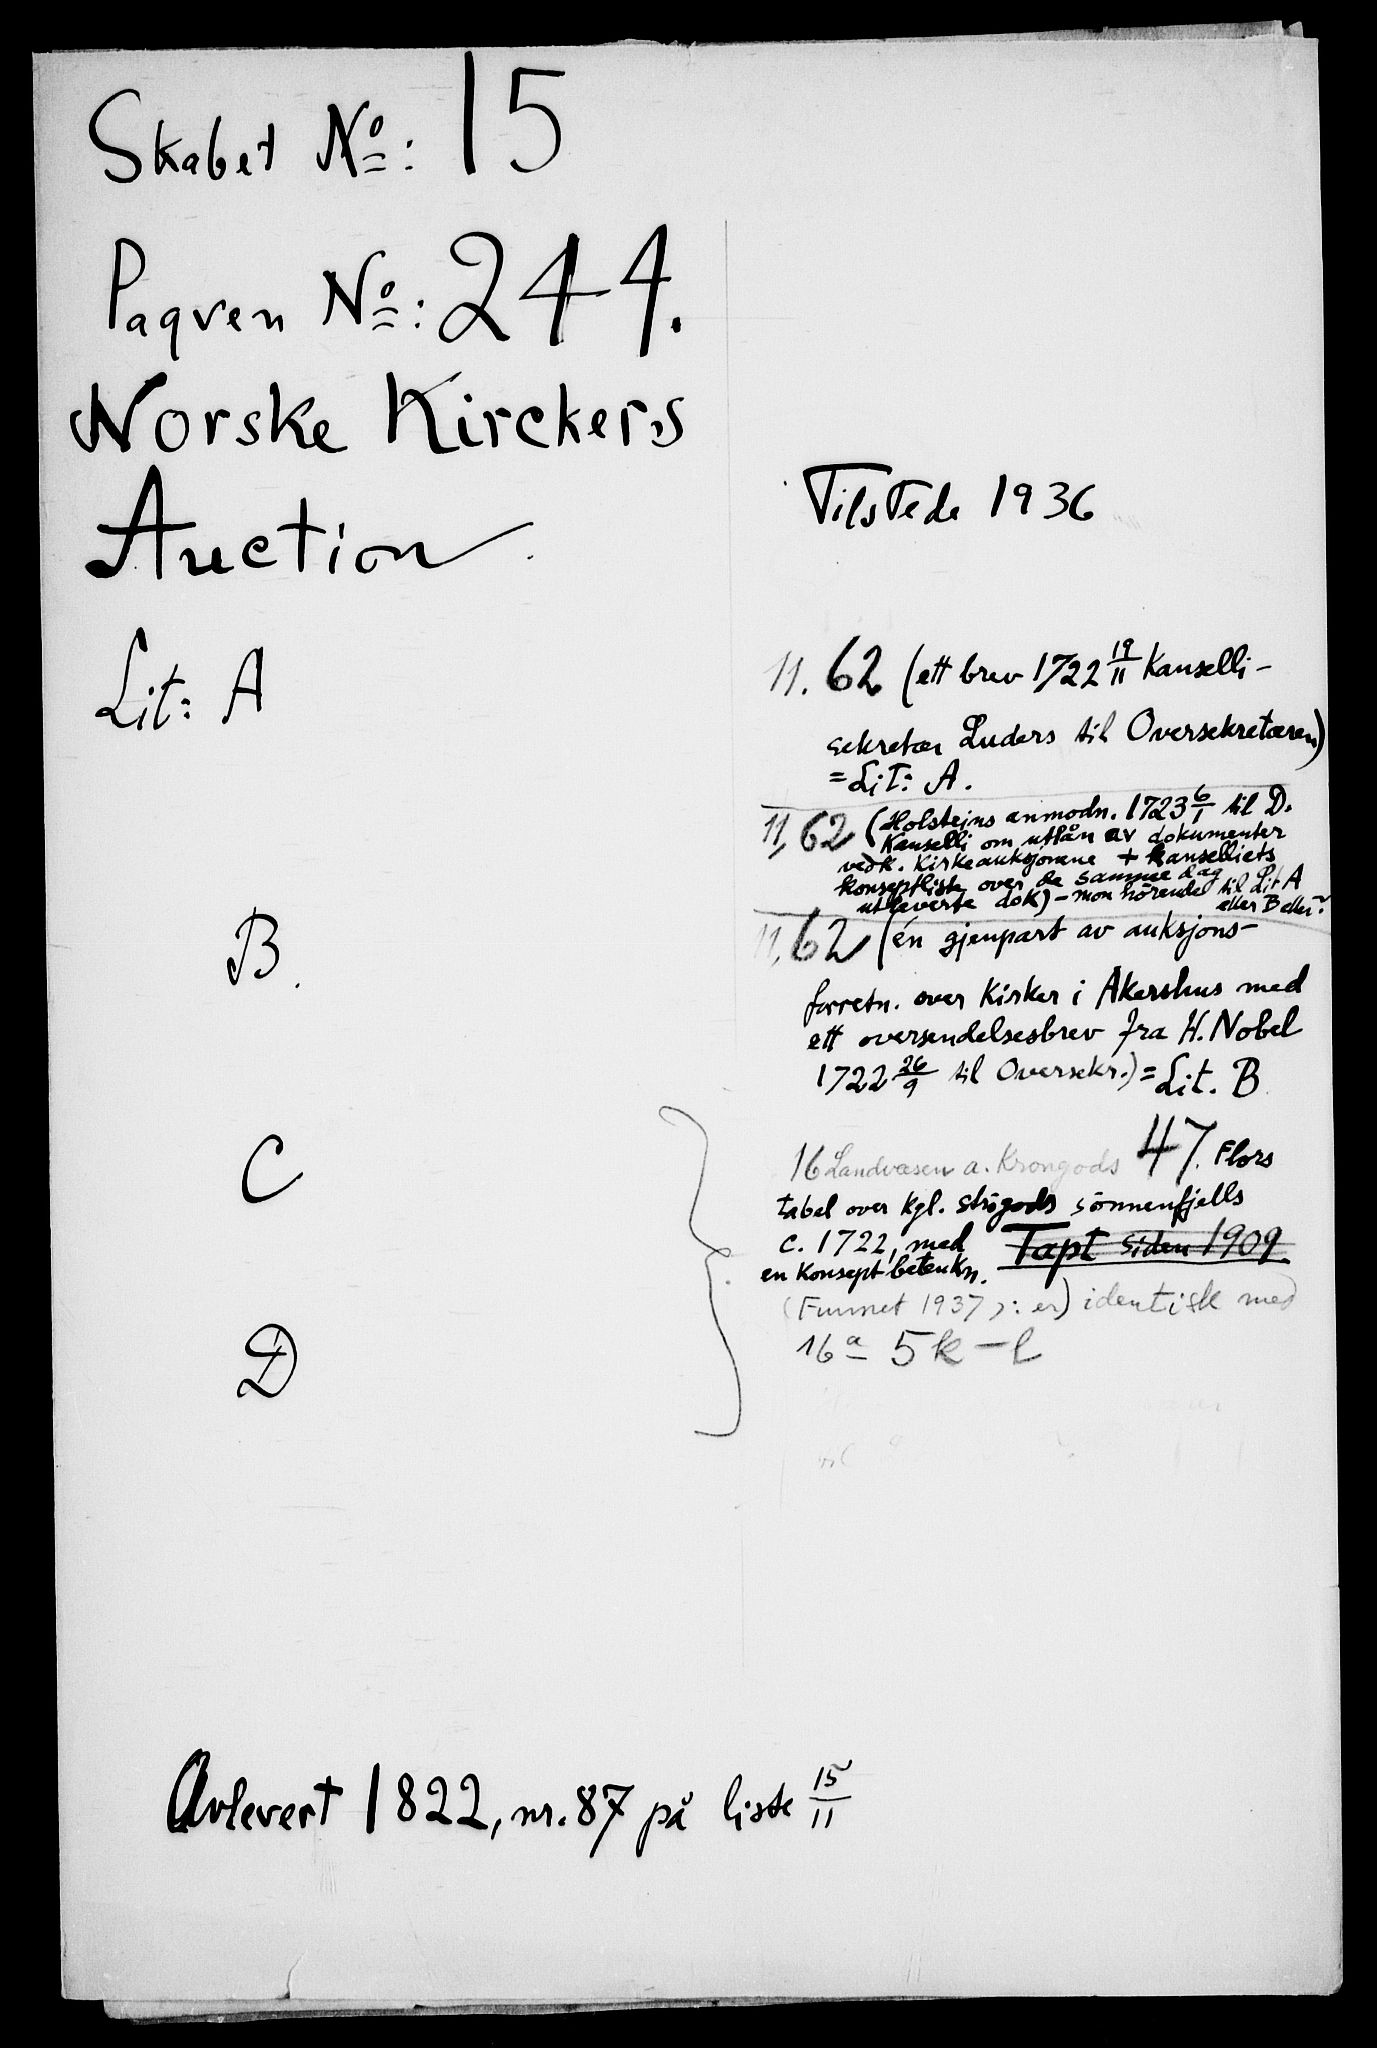 Skabet No: 15
Paqven No: 244.
Norske Kirckers
Auction
Tilstede 1936
Lit: A
11. 62 (ett brev 1722 19/11 Kanselli-
sekretær Luders til Oversekretæren)
= Lit: A.
11, 62 (Holsteins anmodn. 1723 6/1 til D.
Kanselli om utlån av dokumenter
vedk. Kirkeauksjonene + kanselliets
konseptliste over de samme dag
utleverte dok) - mon hörende til Lit A
eller B eller?
B.
11, 62 (én gjenpart av auksjons-
forretn. over Kirker i Akershus med
ett oversendelsesbrev fra H. Nobel
1722 26/9 til Oversekr.) = Lit. B
C
16 Landvæsen a. Krongods 47. Flors
tabel over kgl. strögods sönnenfjells
c. 1722, med Tapt siden 1909
en Konsept betenkn.
(Funnet 1937 ɔ: er) identisk med
16 a 5 k - l
D
Avlevert 1822, nr. 87 på liste 15/11